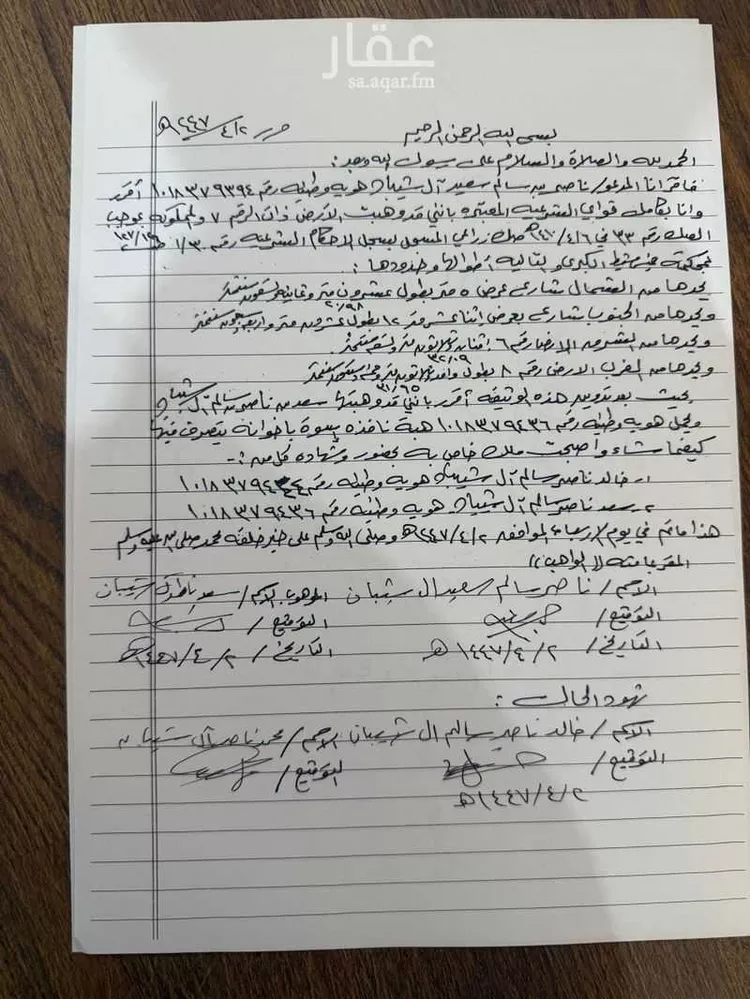 عقار
sa.aqar.fm
بسم الله الرحمن الرحيم
حرر ١٤٤٧/٤/٢هـ
الحمد لله والصلاة والسلام على رسول الله وبعد :
فأقر أنا المدعو / ناصر بن سالم سعيد آل شيبان هويه وطنيه رقم ١٠١٨٣٧٩٣٩٤ أقرر
وانا بكامل قواي الشرعيه المعتبره بانني قد وهبت الارض ذات الرقم ٧ والمملوكه بموجب
الصك رقم ٣٣ في المسجل بسجل الاحكام الشرعيه رقم ١/٣
بمحكمة خميس مشيط الكبرى والتاليه أطوالها وحدودها :
يحدها من الشمال شارع عرض ٥ متر بطول عشرون متر وثمانيه وتسعون سنتمتر
٢٠/٩٨
ويحدها من الجنوب شارع بعرض اثنا عشر متر ١٢ بطول عشرون متر واربعه سنتمتر
ويحدها من الشرق الارض رقم ٦ اثنان وثلاثون متر وتسعه سنتمتر
٣٢/٠٩
ويحدها من الغرب الارض رقم ٨ بطول واحد وثلاثون متر وخمسه وستون سنتمتر
٣١/٦٥
بحيث بعد تدوين هذه الوثيقه أقرر بانني قد وهبتها سعد بن ناصر بن سالم آل شيبان
ويحمل هويه وطنيه رقم ١٠١٨٣٧٩٤٣٦ هبة نافذه إسوة باخوانه يتصرف فيها
كيفما شاء وأصبحت ملك خاص به بحضور وشهاده كل من :-
١- خالد ناصر سالم آل شيبان هويه وطنيه رقم
٢- سعد ناصر سالم آل شيبان هويه وطنيه رقم ١٠١٨٣٧٩٤٣٦
هذا ماتم في يوم الاربعاء الموافق ١٤٤٧/٤/٢هـ وصلى الله وسلم على خير خلقه محمد صلى الله عليه وسلم
المقر بما فيه (( الواهب ))
الاسم / ناصر سالم سعيد ال شيبان الموهوب الاسم / سعد ناصر آل شيبان
التوقيع / التوقيع /
التاريخ / ١٤٤٧/٤/٢ هـ التاريخ / ١٤٤٧/٤/٢هـ
شهود الحال :
الاسم / خالد ناصر سالم ال شيبان الاسم / محمد ناصر آل شيبان
التوقيع / التوقيع /
١٤٤٧/٤/٢هـ